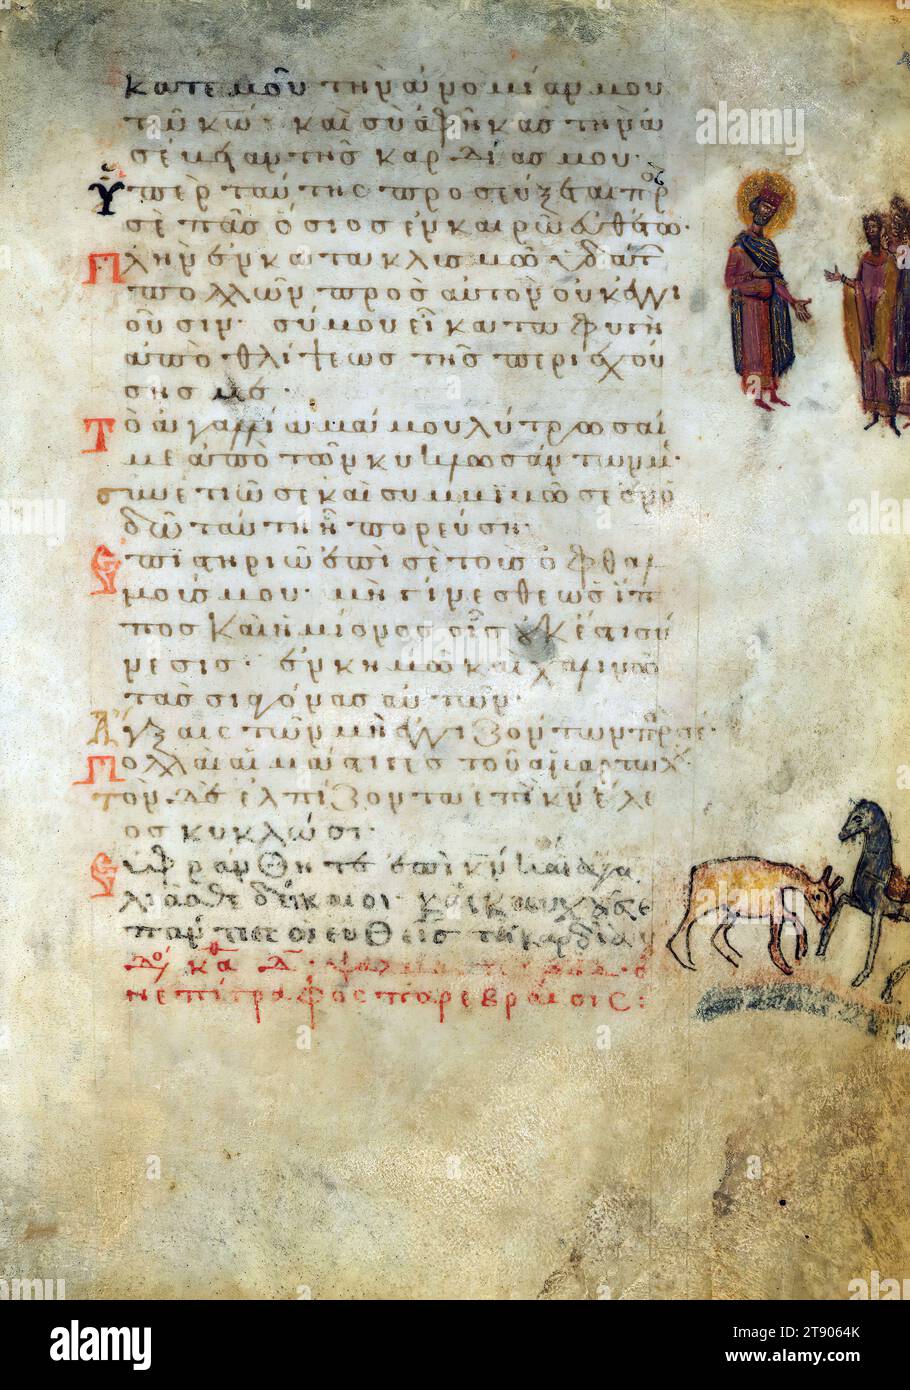 κατ ἐμοῦ τὴν ἀνομίαν μου
τῶ κω· καὶ σὺ ἀφῆκας τὴν ἀ
σέβειαν τῆς καρδίας μου·
Ὑπὲρ ταύτης προσεύξεται πρ
σὲ πᾶς ὅσιος ἐν καιρῶ εὐθέτω·
Πλὴν ἐν κατακλυσμῶ ὑδάτ
πολλῶν πρὸς αὐτὸν οὐκ ἐγγι
οῦσιν· σύ μου εἶ καταφυγὴ
ἀπὸ θλίψεως τῆς περιεχού
σης με·
Τὸ ἀγαλλίαμά μου λύτρωσαί
με ἀπὸ τῶν κυκλωσάντων με·
συνετιῶ σε καὶ συμβιβῶ σε ἐν ὁ
δῶ ταύτη ἧ πορεύση·
Ἐπιστηριῶ ἐπὶ σὲ τοὺς ὀφθαλ
μούς μου· μὴ γίνεσθε ὡς ἵπ
πος καὶ ἡμίονος οἷς οὐκ ἔστι σύ
νεσις· ἐν κημῶ καὶ χαλινῶ
τὰς σιαγόνας αὐτῶν
ἄγξαις τῶν μὴ ἐγγιζόντων πρὸς σέ·
Πολλαὶ αἱ μάστιγες τοῦ ἁμαρτωλοῦ
τὸν δὲ ἐλπίζοντα ἐπὶ κν ἔλε
ος κυκλώσει·
Εὐφράνθητε ἐπὶ κν καὶ ἀγα
λιᾶσθε δίκαιοι· καὶ καυχᾶσθε
πάντες οἱ εὐθεῖς τῆ καρδία
ψαλμὸς τῶ δαδ
ἀνεπίγραφος παρ ἑβραίοις:
alamy
Image ID: 2T9064K
www.alamy.com